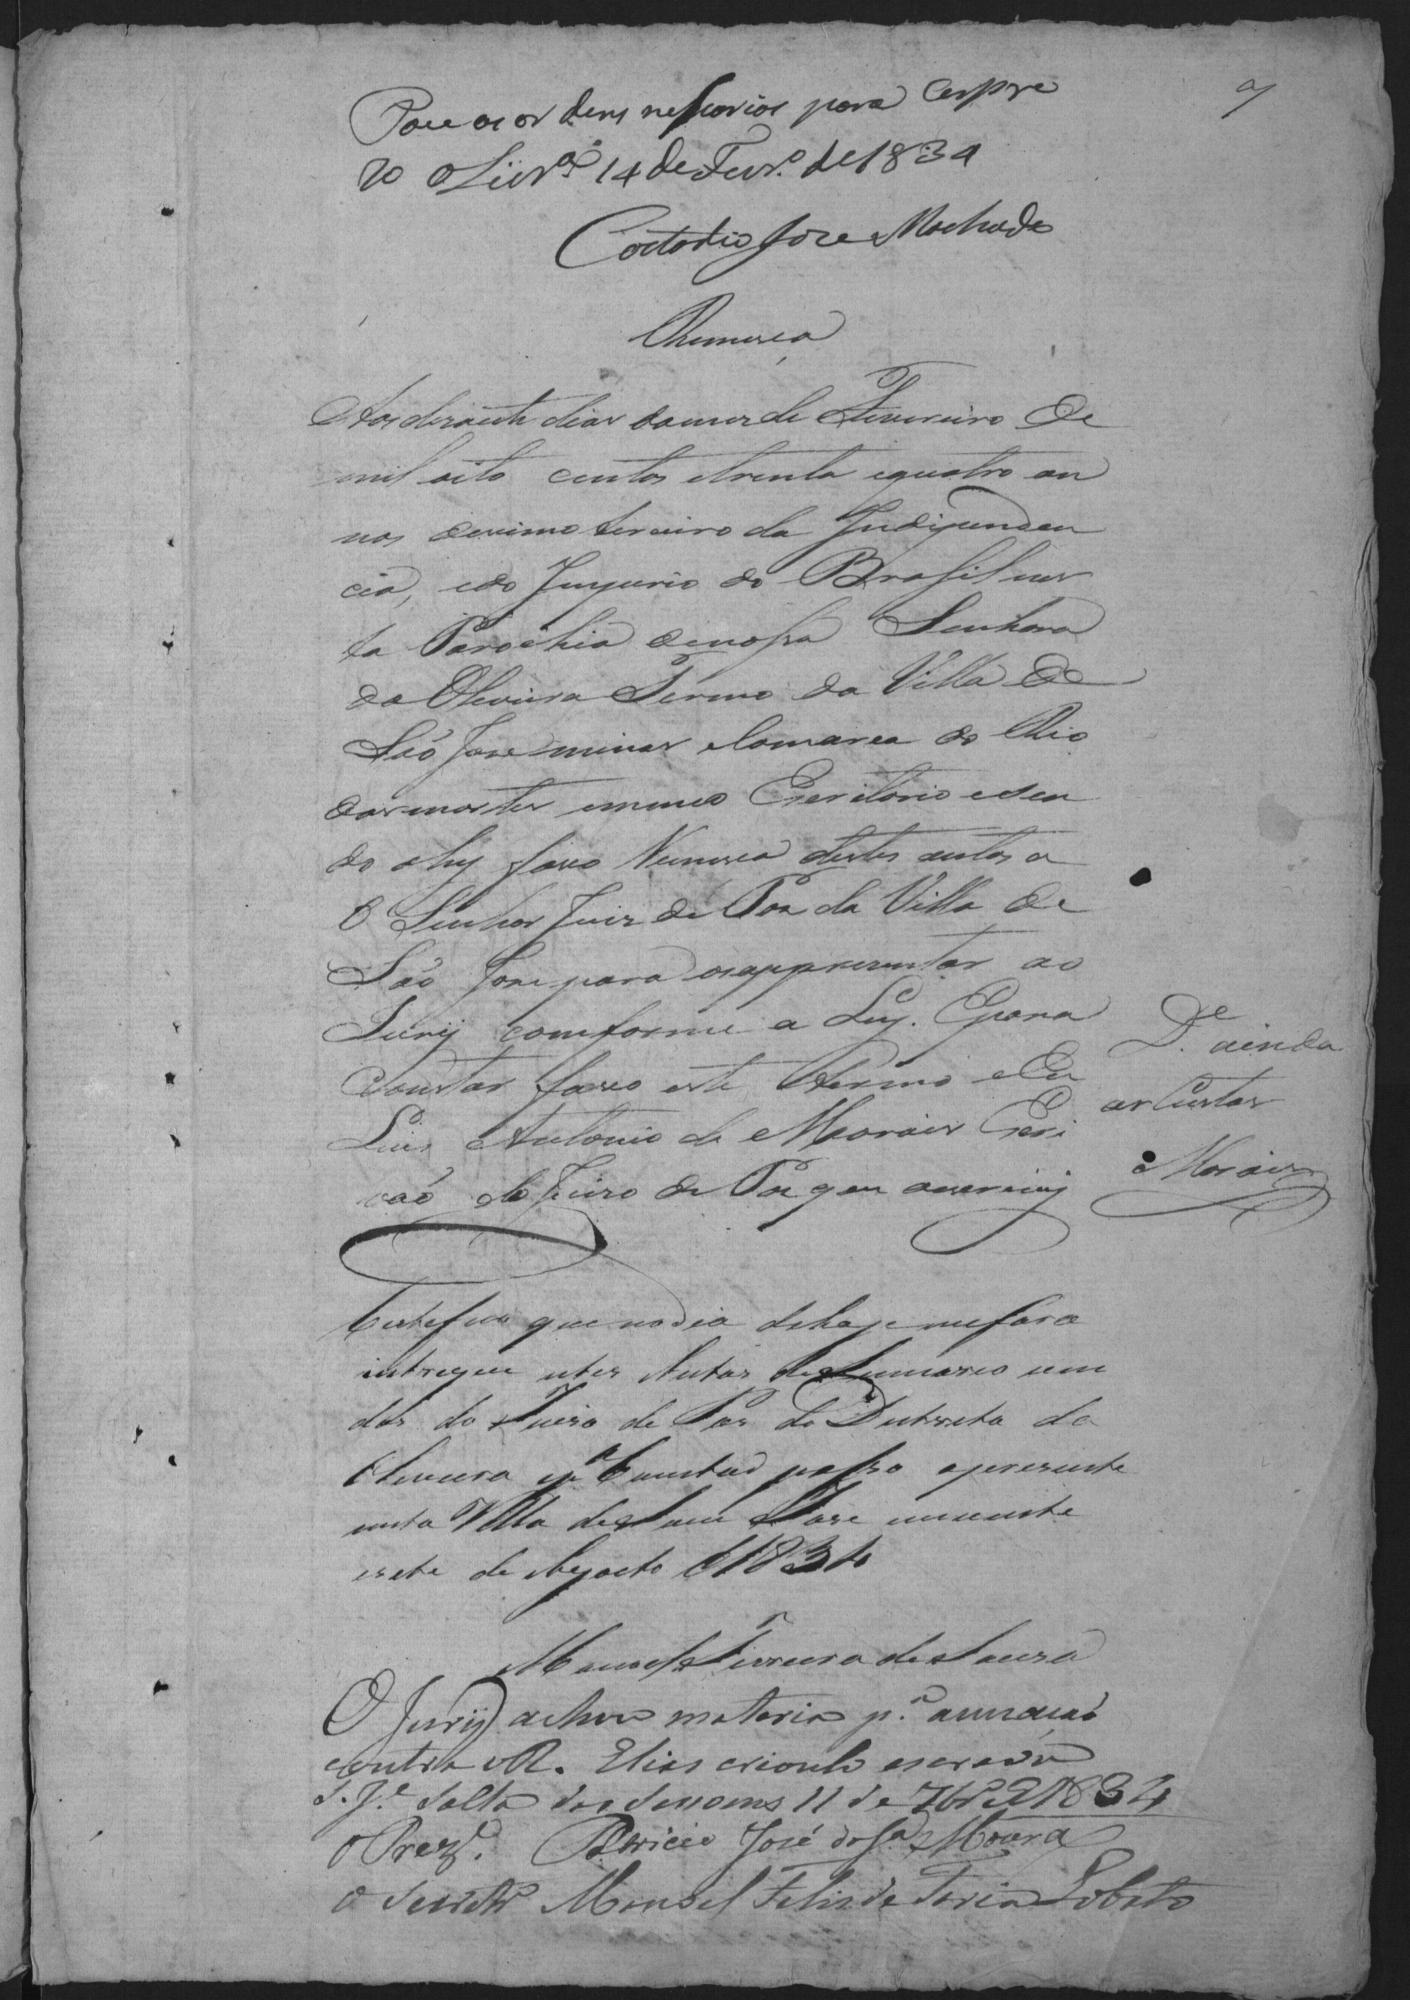 7
Pace as or dens nesesarios para Ser pre
zo Oliv.ra 14 de Fever.o de 1834
Costodio Jose Machado
Remeca
Aos desaete dias do mes de Fevereiro de
mil oito centos e trenta e quatro an
nos decimo terceiro da Indipenden
cia, e do Imperio do Brasil nes
ta Parochia de nossa Senhora
da Oliveira Termo da Villa de
São Jose minas e Comarca do Rio
das mortes em meu Escritorio e sen
do ahy faço Remeca destes autos a
o Senhor Juis de Pas da Villa de
São Jose para os appresentar ao
Jurij comforme a Ley. E para
Constar faço este Termo e Eu
Luis Antonio de Morais Escri
vaó do Juizo de Pas que o escrevij
D.e ainda
as Custas
Morais
Certefico que no dia de hoje me foraõ
intregue estes Autos de Sumario vin
dos do Juizo de Pas do Destrito da
Oliveira e p.a Constar passo a presente
nesta Villa de Sam Jose em vinte
e sete de Agosto de 1834
Manoel Ferreira de Souza
O Jurij achou materia p.a accusaçaõ
contra o R. Elias crioulo escravo
d. J.e sala das sessoens 11 de 7br.o de 1834
o Prez.e Patricio José de Moura
o Secretr.o Manoel Felis de Faria Lobato